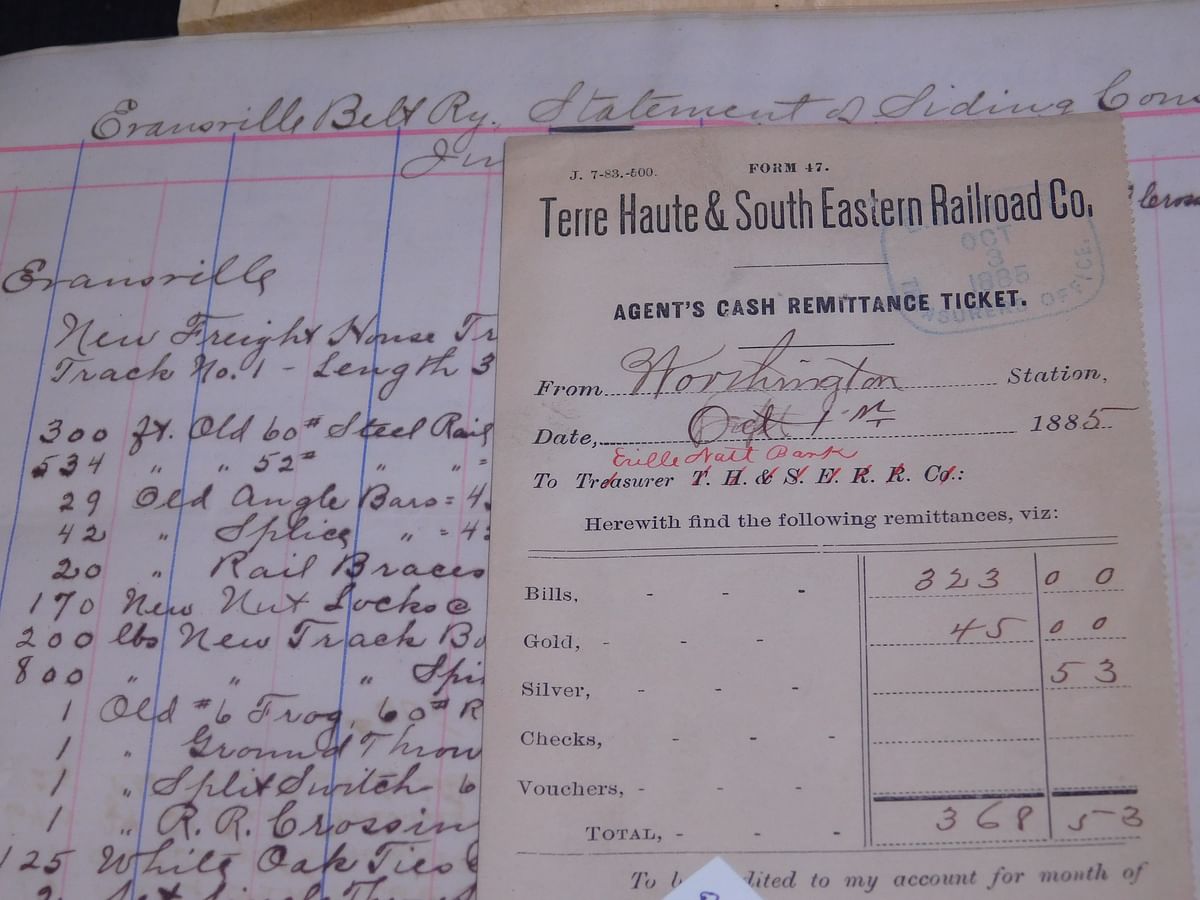 Evansville Belt Ry. Statement of Siding Cons
Jun
Cross
Evansville
New Freight House Tr
Track No. 1 - Length 3
300 ft. Old 60# Steel Rail
534 " " 52# " " =
29 Old Angle Bars = 4
42 " Splice " = 4
20 " Rail Braces
170 New Nut Locks @
200 lbs New Track Bo
800 " " " Spi
1 Old #6 Frog, 60# R
1 " Ground Throw
1 " Split Switch 6
1 " R. R. Crossin
125 White Oak Ties
J. 7-83.-500. FORM 47.
Terre Haute & South Eastern Railroad Co.
OCT
3
1885
OFFICE.
AGENT'S CASH REMITTANCE TICKET.
From Worthington Station,
Date, Oct 1st 1885
Eville Natl Bank
To Treasurer T. H. & S. E. R. R. Co.:
Herewith find the following remittances, viz:
Bills, - - - 323 00
Gold, - - - 45 00
Silver, - - - 53
Checks, - - -
Vouchers, - - -
TOTAL, - - - 368 53
To b dited to my account for month of